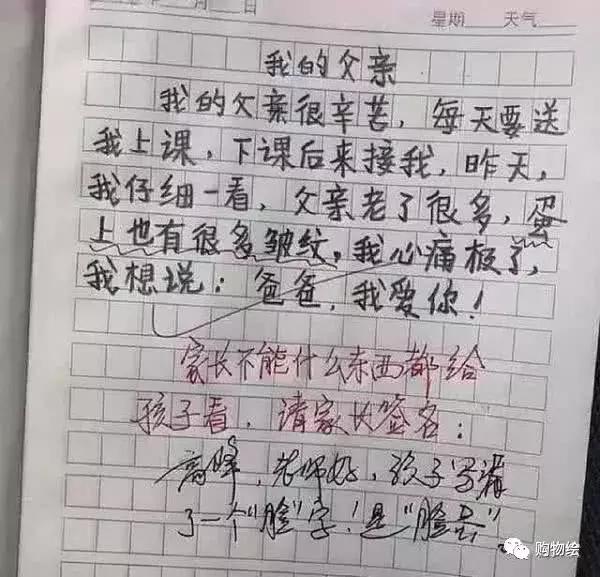 月 日
星期 天气
我的父亲
我的父亲很辛苦，每天要送
我上课，下课后来接我，昨天，
我仔细一看，父亲老了很多，蛋
上也有很多皱纹，我心痛极了，
我想说：爸爸，我爱你！
家长不能什么东西都给
孩子看，请家长签名：
高峰，老师好，孩子写漏
了一个"脸"字！是"脸蛋"
购物绘